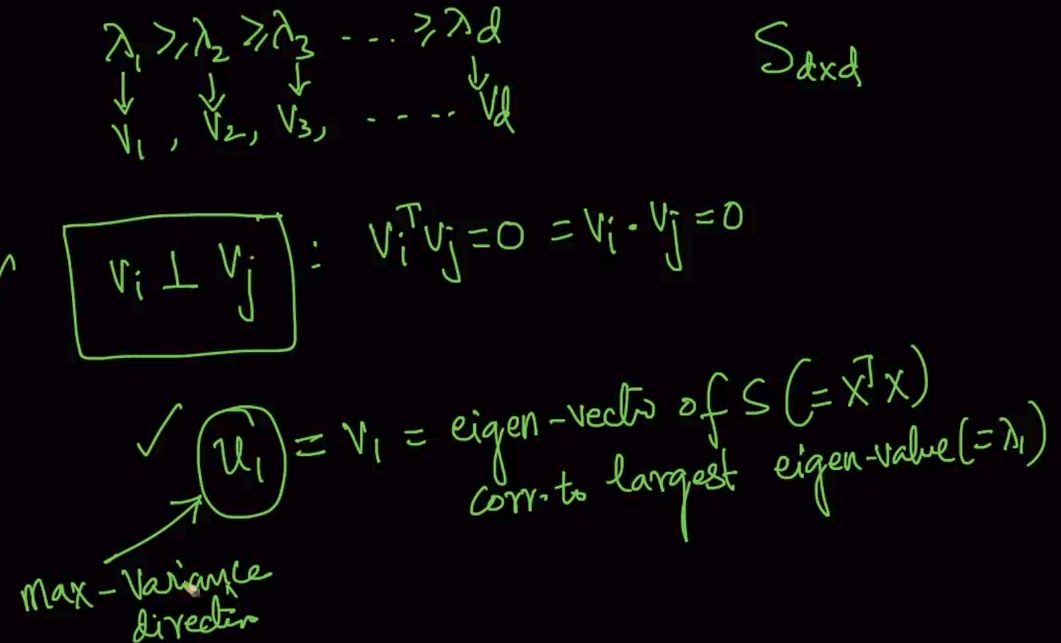 λ₁ ≥ λ₂ ≥ λ₃ .... ≥ λd
S d×d
↓ ↓ ↓ ↓
V₁, V₂, V₃, ..... Vd
Vi ⊥ Vj : Viᵀ Vj = 0 = Vi · Vj = 0
✓ u₁ = V₁ = eigen-vector of S (= XᵀX)
corr. to largest eigen-value (= λ₁)
max-variance
direction